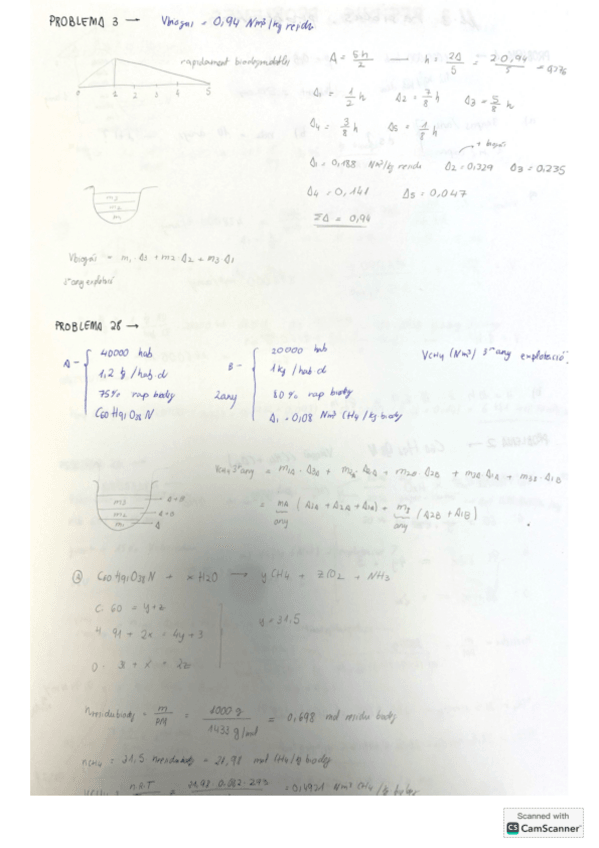 PROBLEMA 3 → Vbiogas = 0,94 Nm³/kg residu
rapidament biodegradables
0 1 2 3 4 5
A = 5h/2 → h = 2A/5 = 2·0,94/5 = 0,376
A1 = 1/2 h A2 = 7/8 h A3 = 5/8 h
A4 = 3/8 h A5 = 1/8 h
A1 = 0,188 Nm³/kg residu A2 = 0,329 A3 = 0,235
A4 = 0,141 A5 = 0,047
ΣA = 0,94
m3
m2
m1
Vbiogas = m1·A3 + m2·A2 + m3·A1
3er any explotació
PROBLEMA 28 →
A - 40000 hab
1,2 kg/hab·d
75% rap biodg
C60H91O38N
B - 20000 hab
2 any 1 kg/hab d
80% rap biodg
A1 = 0,08 Nm³ CH4/kg biodg
VCH4 (Nm³) 3er any explotació
m3 A+B
m2 A+B
m1 A
3er any = m1A·A3A + m2A·A2A + m2B·A2B + m3A·A1A + m3B·A1B
= mA/any (A1A + A2A + A3A) + mB/any (A2B + A1B)
C60H91O38N + xH2O → yCH4 + zCO2 + NH3
C. 60 = y+z
H. 91 + 2x = 4y+3
y = 31,5
O. 38 + x = 2z
nresidu biodg = m/PM = 1000 g/1433 g/mol = 0,698 mol residu biodg
nCH4 = 31,5 nresidu biodg = 21,98 mol CH4/kg biodg
n·R·T = 21,98·0,082·273 = 0,4921 Nm³ CH4/kg biodg
Scanned with
CS CamScanner